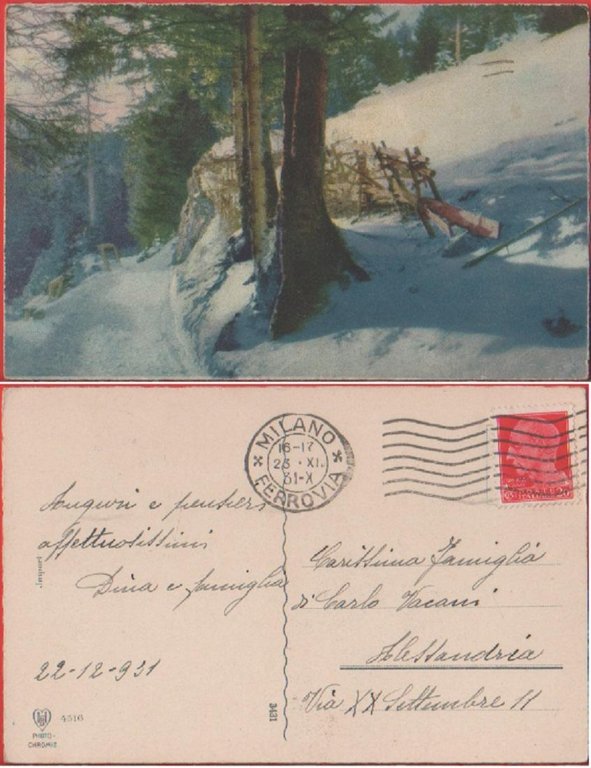 MILANO
16-17
23 · XI.
31-X
FERROVIA
Auguri e pensieri
affettuosissimi
Dina e famiglia
22-12-931
Carissima Famiglia
di Carlo Vacani
Alessandria
Via XX Settembre 11
4516
PHOTO-
CHROMIE
3431